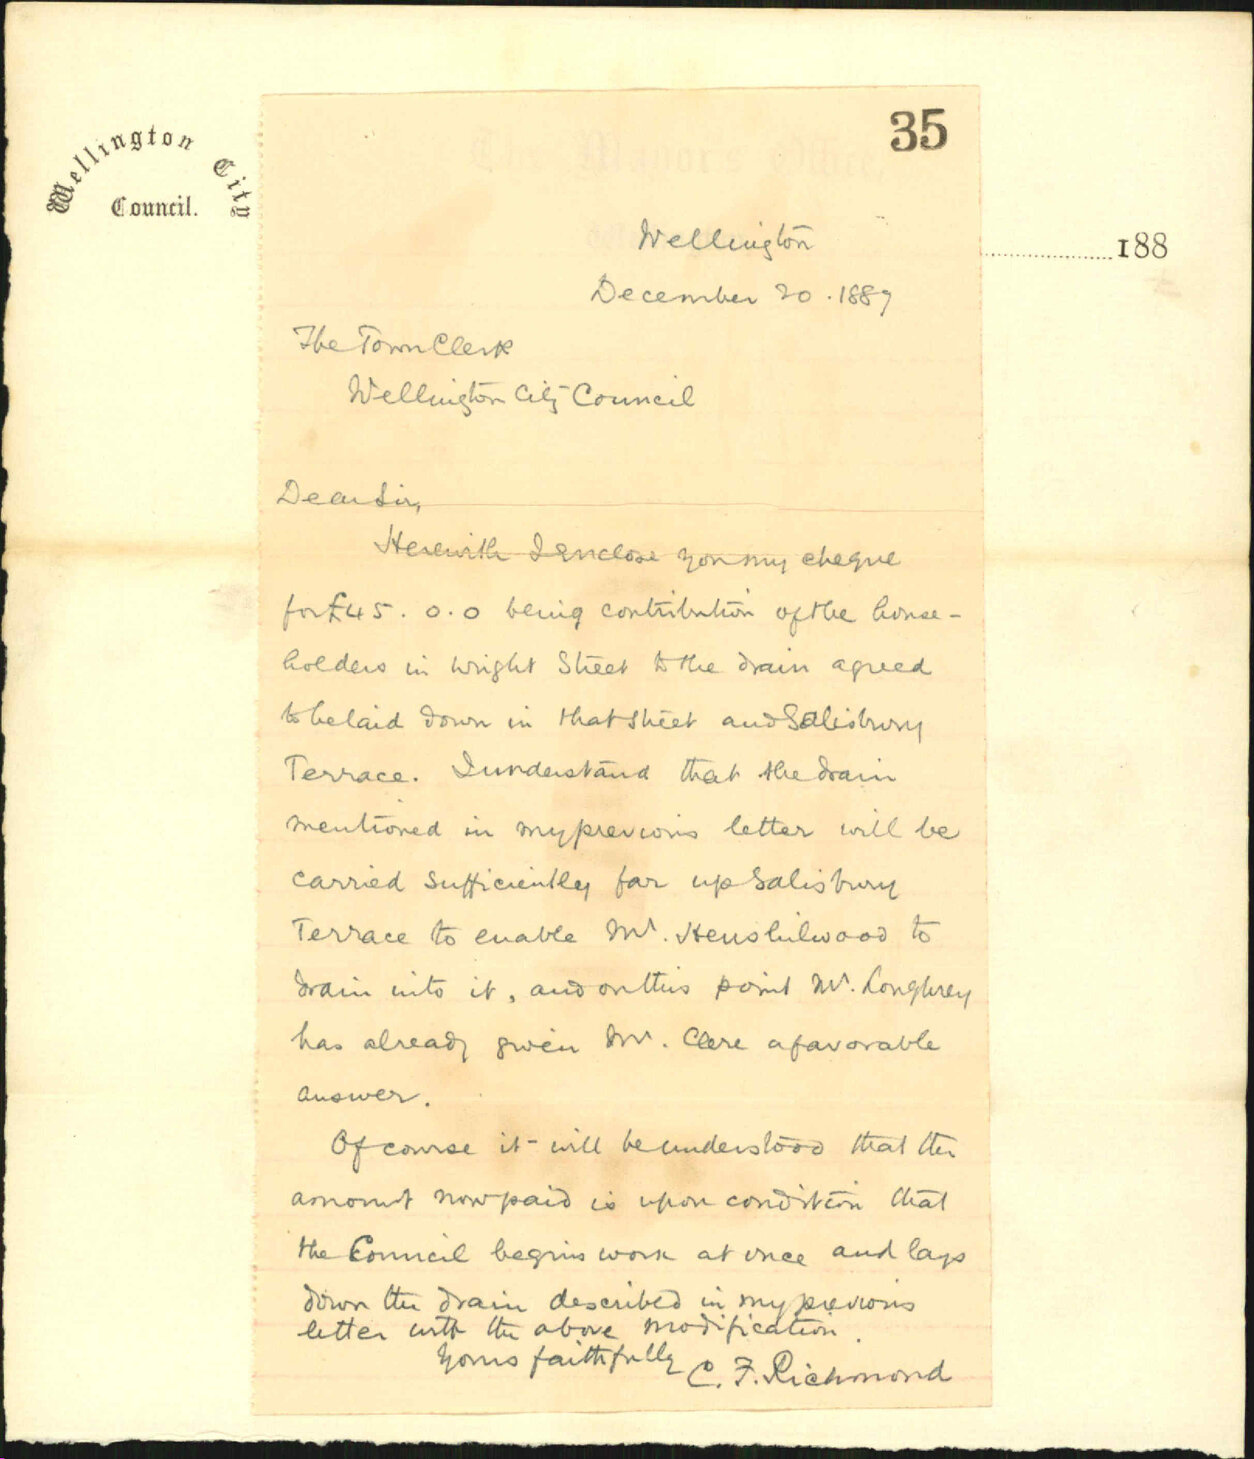 Wellington City
Council.
35
188
Wellington
December 20. 1889
The Town Clerk
Wellington City Council
Dear Sir,
Herewith I enclose you my cheque
for £45. 0. 0 being contribution of the house-
holders in Wright Street to the drain agreed
to be laid down in that street and Salisbury
Terrace. I understand that the drain
mentioned in my previous letter will be
carried sufficiently far up Salisbury
Terrace to enable Mr. Henshilwood to
drain into it, and on this point Mr. Loughrey
has already given Mr. Clere a favorable
answer.
Of course it will be understood that the
amount now paid is upon condition that
the Council begins work at once and lays
down the drain described in my previous
letter with the above modification.
Yours faithfully C. F. Richmond